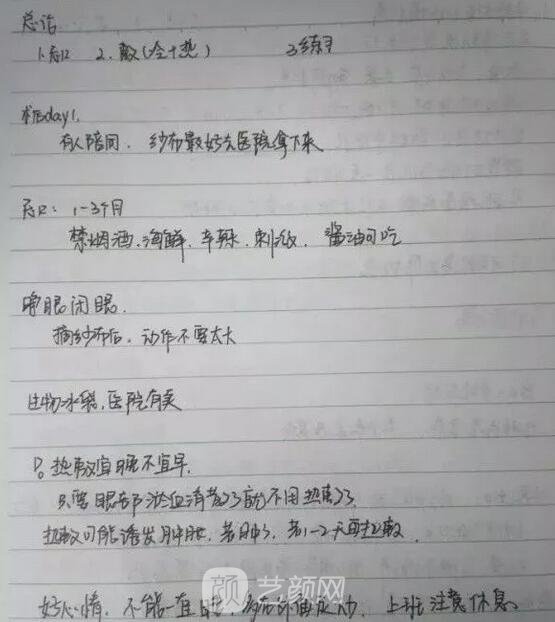 总结
1.忌口 2.敷(冷+热) 3练习
术后day1.
有人陪同. 纱布最好去医院拿下来
忌口: 1-3个月
禁烟酒.海鲜.辛辣.刺激. 酱油可吃
睁眼闭眼.
摘纱布后. 动作不要太大
生物冰袋.医院有卖
热敷宜晚不宜早.
只要眼部淤血消散了就不用热敷了
热敷可能诱发肿胀. 若肿了, 若1-2天再热敷.
好心情. 不能一直 上班注意休息.
颜艺颜网